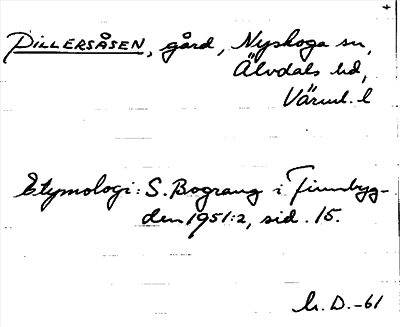 PILLERSÅSEN, gård, Nyskoga sn,
Älvdals hd,
Värml. l
Etymologi: S. Bograng i Finnbyg-
den 1951:2, sid. 15.
D.-61